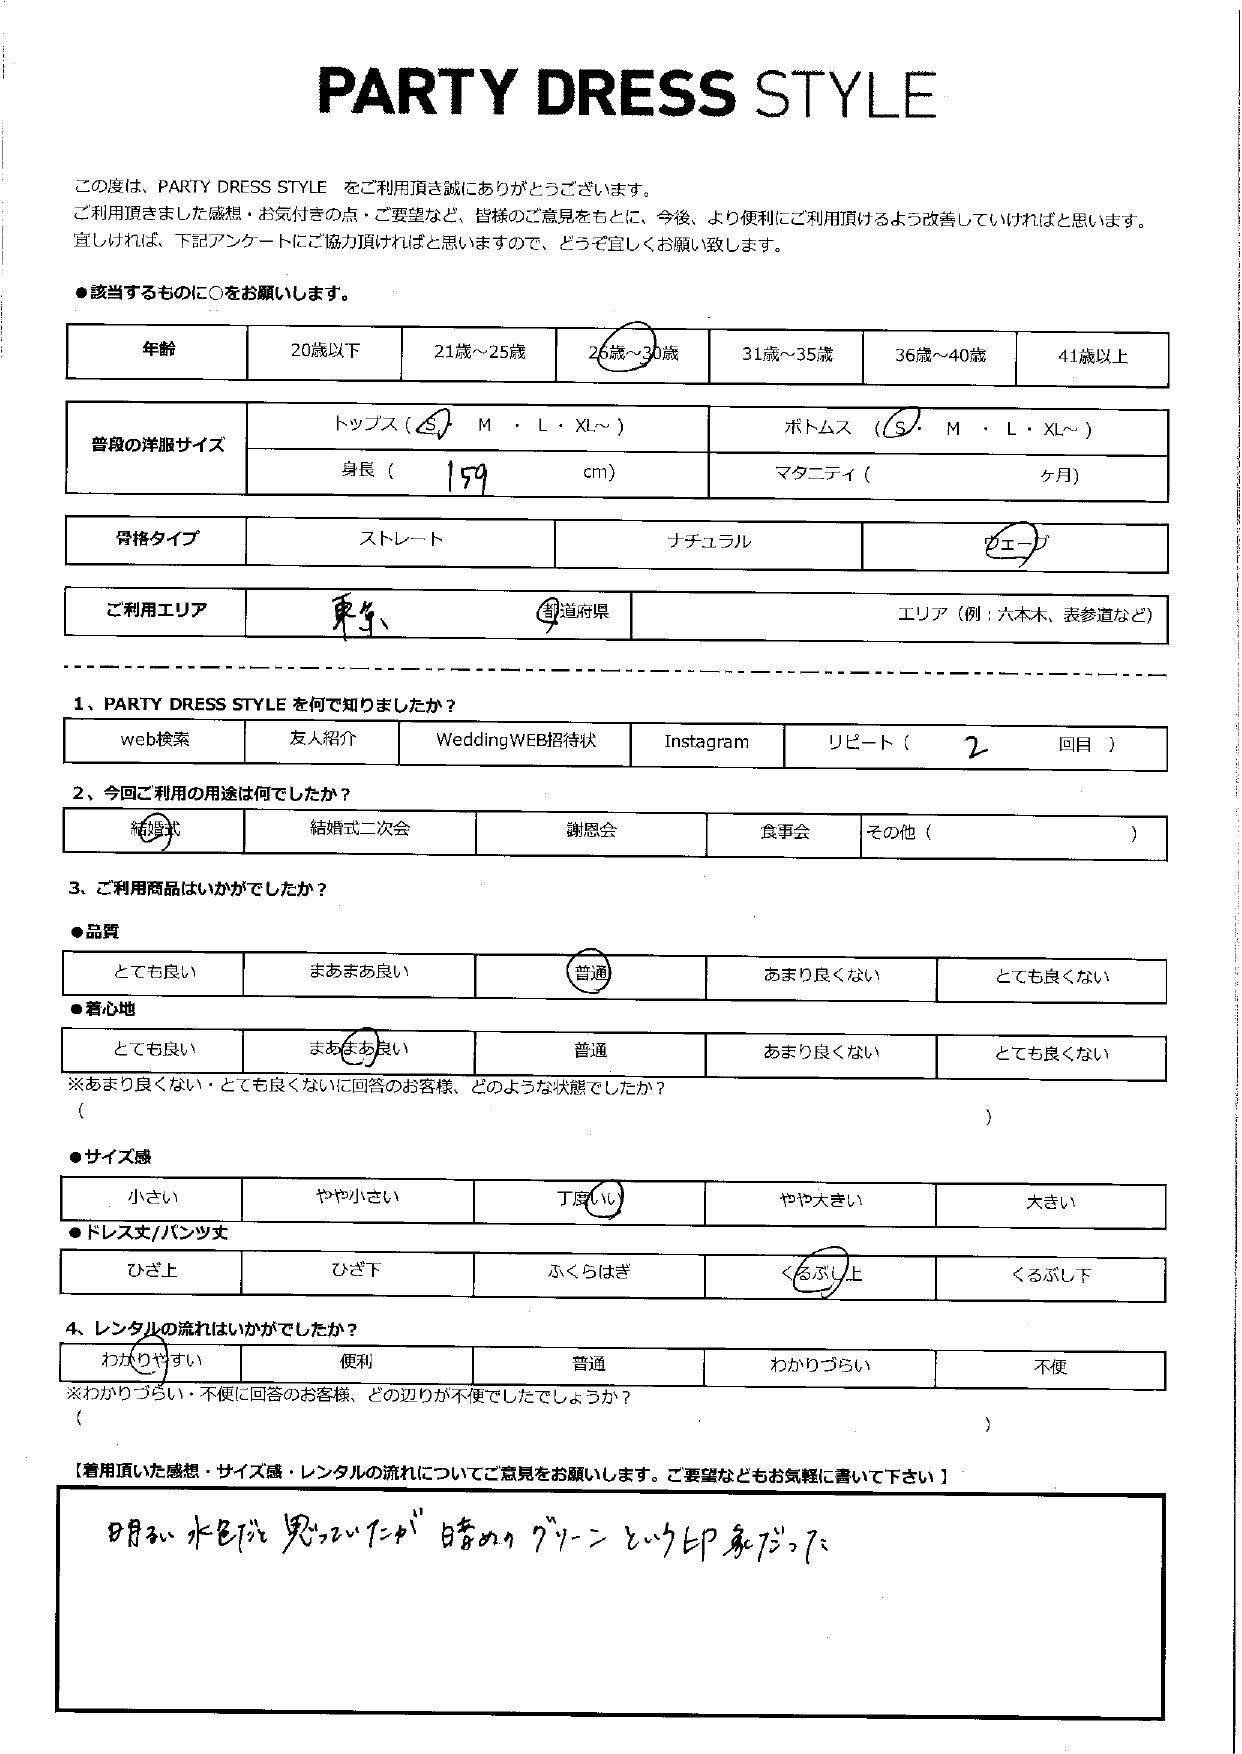 PARTY DRESS STYLE
この度は、PARTY DRESS STYLE をご利用頂き誠にありがとうございます。
ご利用頂きました感想・お気付きの点・ご要望など、皆様のご意見をもとに、今後、より便利にご利用頂けるよう改善していければと思います。
宜しければ、下記アンケートにご協力頂ければと思いますので、どうぞ宜しくお願い致します。
●該当するものに○をお願いします。
年齢 20歳以下 21歳～25歳 26歳～30歳 31歳～35歳 36歳～40歳 41歳以上
普段の洋服サイズ トップス（ S ・ M ・ L ・ XL～ ） ボトムス （ S ・ M ・ L ・ XL～ ）
身長（ 159 cm） マタニティ（ ヶ月）
骨格タイプ ストレート ナチュラル ウェーブ
ご利用エリア 東京 都道府県 エリア（例：六本木、表参道など）
1、PARTY DRESS STYLE を何で知りましたか？
web検索 友人紹介 WeddingWEB招待状 Instagram リピート（ 2 回目 ）
2、今回ご利用の用途は何でしたか？
結婚式 結婚式二次会 謝恩会 食事会 その他（ ）
3、ご利用商品はいかがでしたか？
●品質
とても良い まあまあ良い 普通 あまり良くない とても良くない
●着心地
とても良い まあまあ良い 普通 あまり良くない とても良くない
※あまり良くない・とても良くないに回答のお客様、どのような状態でしたか？
（ ）
●サイズ感
小さい やや小さい 丁度いい やや大きい 大きい
●ドレス丈/パンツ丈
ひざ上 ひざ下 ふくらはぎ くるぶし上 くるぶし下
4、レンタルの流れはいかがでしたか？
わかりやすい 便利 普通 わかりづらい 不便
※わかりづらい・不便に回答のお客様、どの辺りが不便でしたでしょうか？
（ ）
【着用頂いた感想・サイズ感・レンタルの流れについてご意見をお願いします。ご要望などもお気軽に書いて下さい 】
明るい 水色だと 思っていたが 暗めの グリーン という印象だった